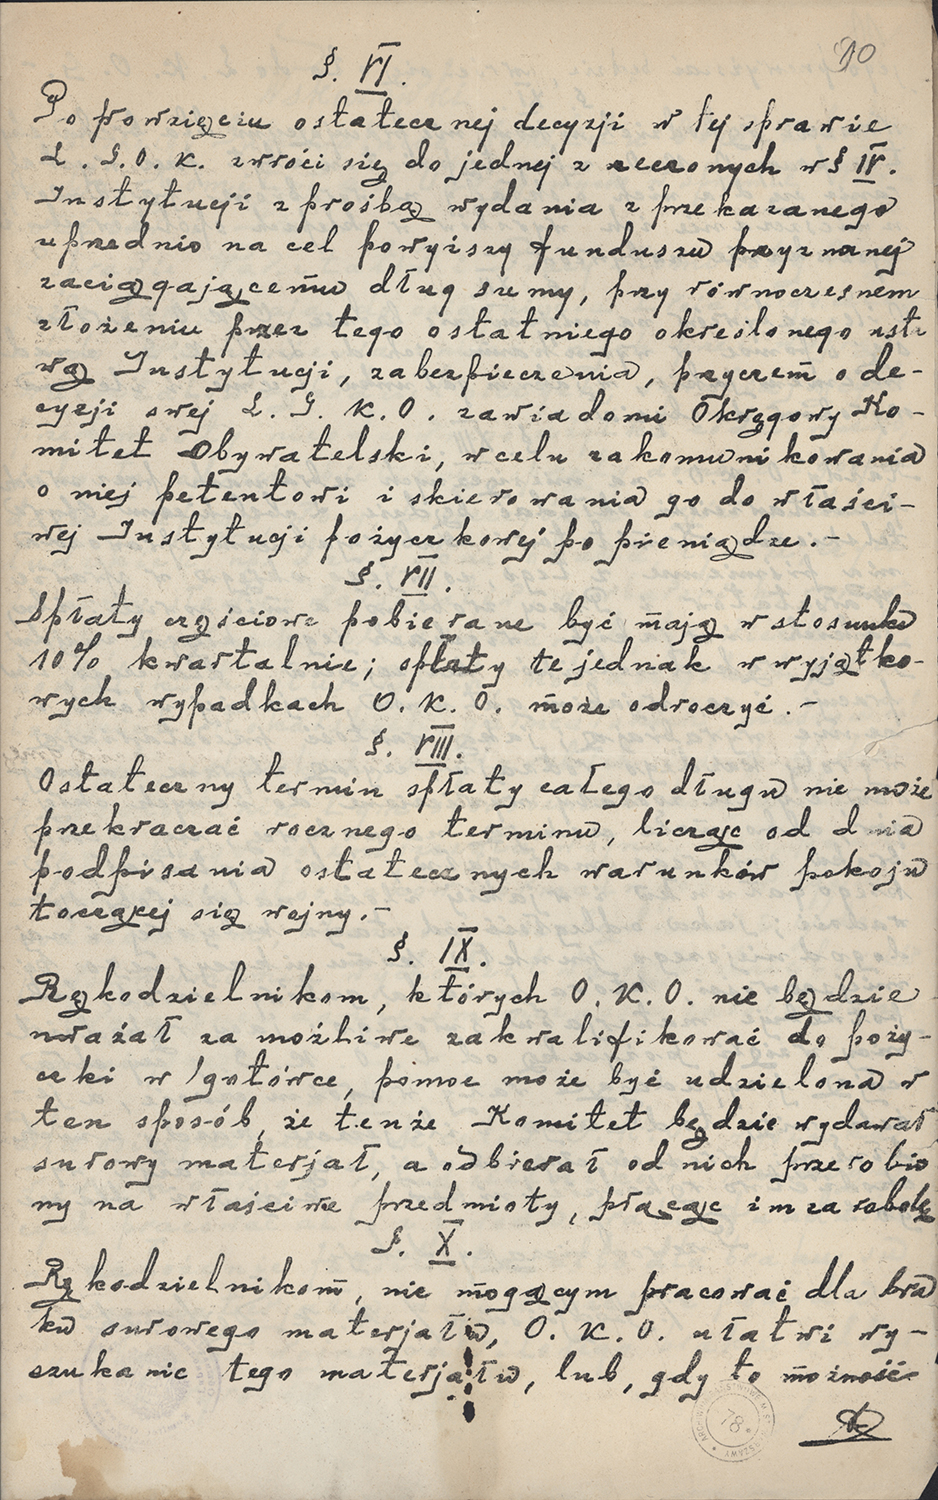 10
§. VI.
Po powzięciu ostatecznej decyzji w tej sprawie
Ł. G. O. K. zwróci się do jednej z rzeczonych w § IV.
Instytucji z prośbą wydania z przekazanego
uprzednio na cel powyższy funduszu przyznanej
zaciągającemu dług sumy, przy równoczesnem
złożeniu przez tego ostatniego określonego usta
wą Instytucji, zabezpieczenia, przyczem o de-
cyzji swej Ł. G. K. O. zawiadomi Okręgowy Ko-
mitet Obywatelski, w celu zakomunikowania
o niej petentowi i skierowania go do właści-
wej Instytucji pożyczkowej po pieniądze.-
§. VII.
Spłaty częściowe pobierane być mają w stosunku
10% kwartalnie; opłaty te jednak w wyjątko-
wych wypadkach O. K. O. może odroczyć.-
§. VIII.
Ostateczny termin spłaty całego długu nie może
przekraczać rocznego terminu, licząc od dnia
podpisania ostatecznych warunków pokoju
toczącej się wojny.-
§. IX.
Rękodzielnikom, których O. K. O. nie będzie
uważał za możliwe zakwalifikować do poży-
czki w gotówce, pomoc może być udzielona w
ten sposób, że tenże Komitet będzie wydawał
surowy materjał, a odbierał od nich przerobio
ny na właściwe przedmioty, płacąc im za robotę
§. X.
Rękodzielnikom, nie mogącym pracować dla bra
ku surowego materjału, O. K. O. ułatwi wy-
szukanie tego materjału, lub, gdy to możność
78